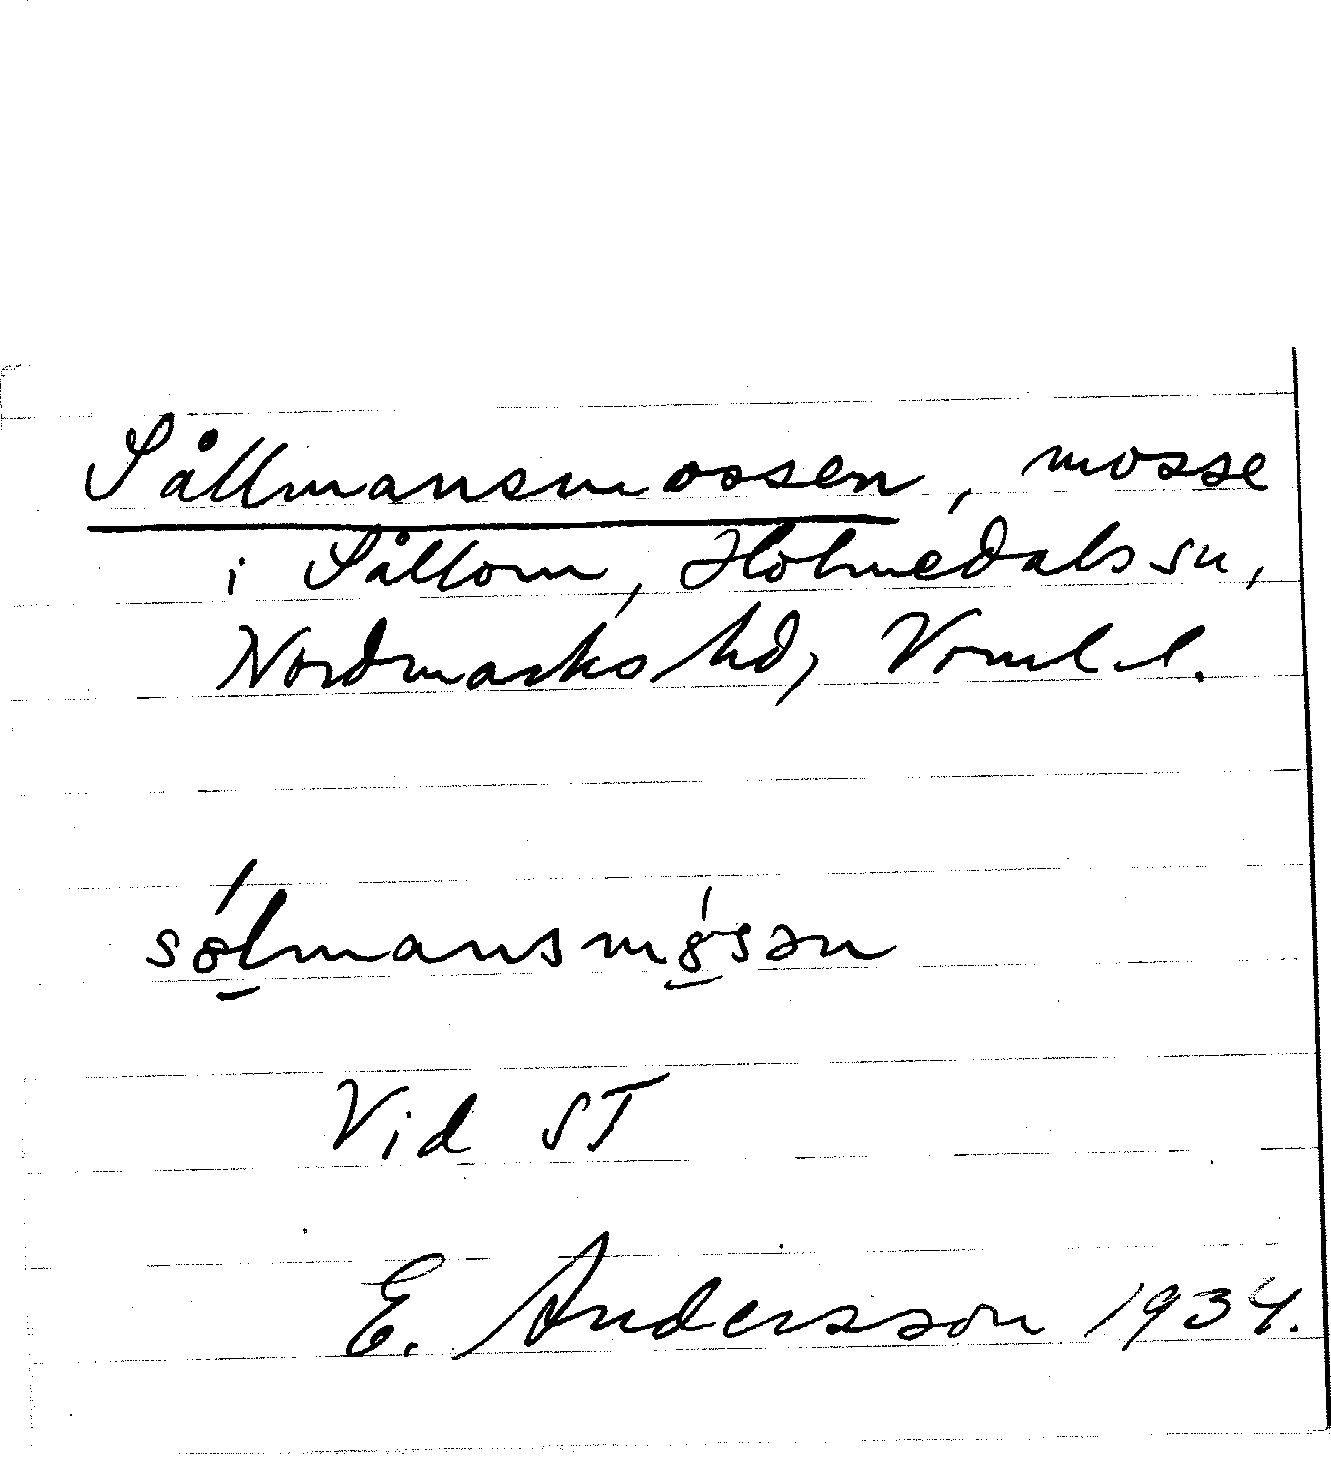 Sållmansmossen, mosse
i Sållom, Holmedals sn,
Nordmarks hd, Vrml. l.
sȯ́lmansmȯ́sən
Vid ST
E. Andersson 1934.